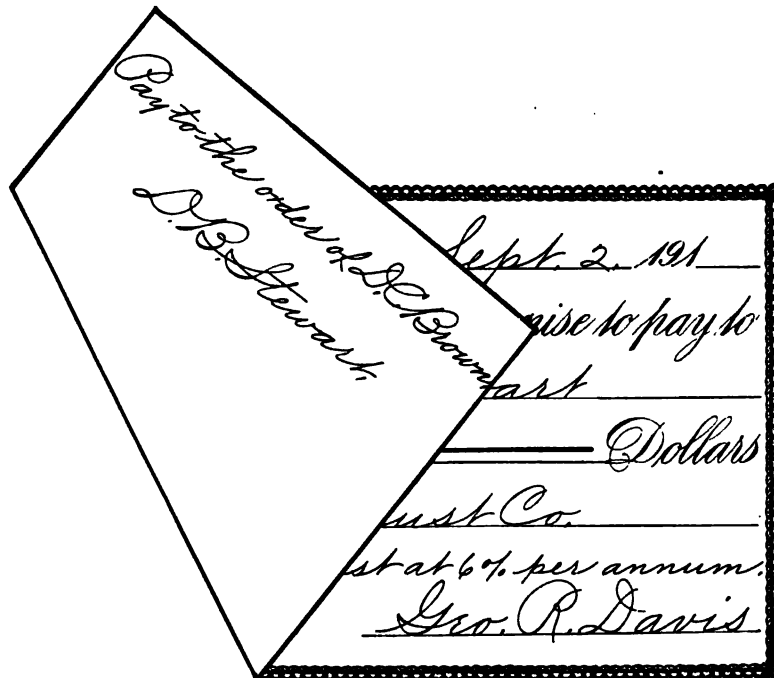 Pay to the order of D.C. Brown
D. B. Stewart.
Sept. 2, 191
mise to pay to
art
Dollars
ust Co.
st at 6% per annum.
Geo. R. Davis